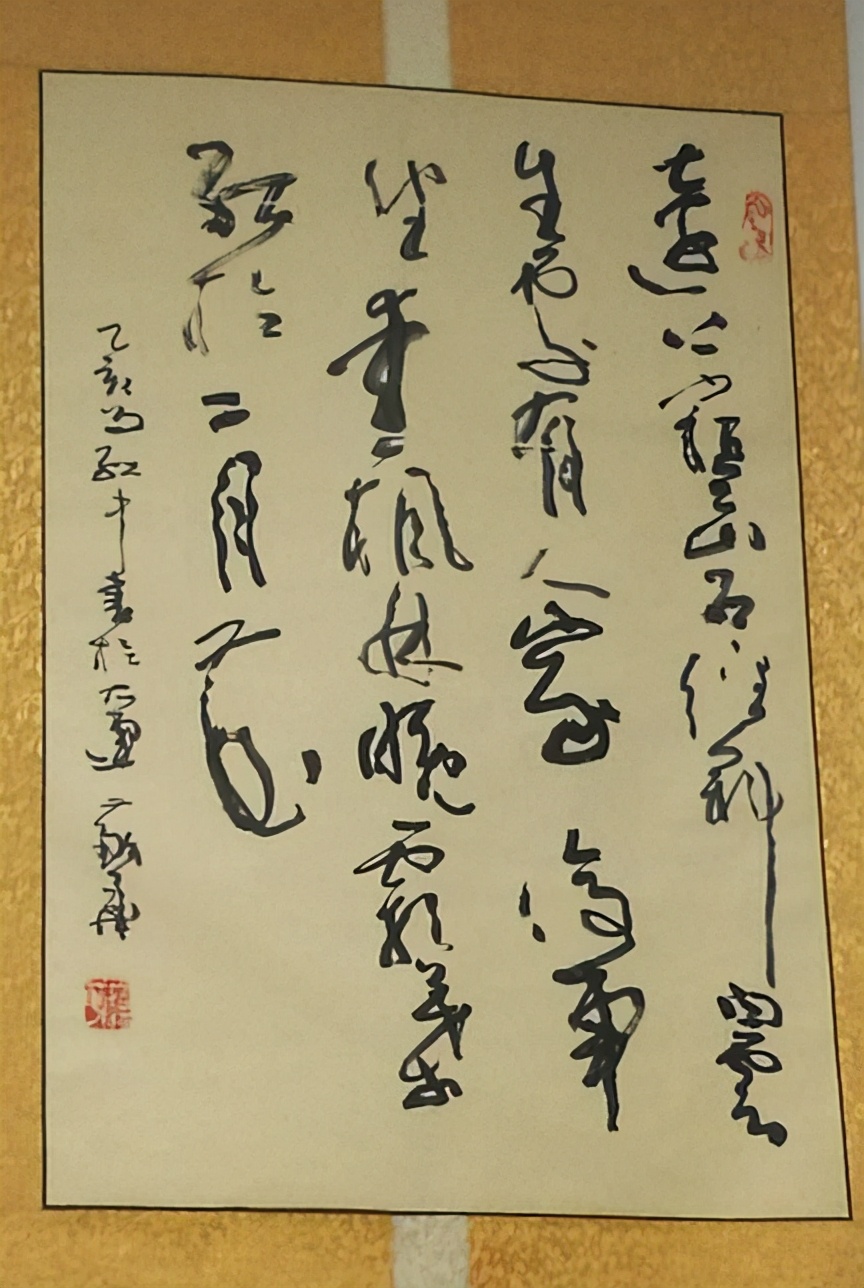 遠上寒山石徑斜白雲
生處有人家停車
坐愛楓林晚霜葉
紅於二月花
乙亥為紅中書於大連